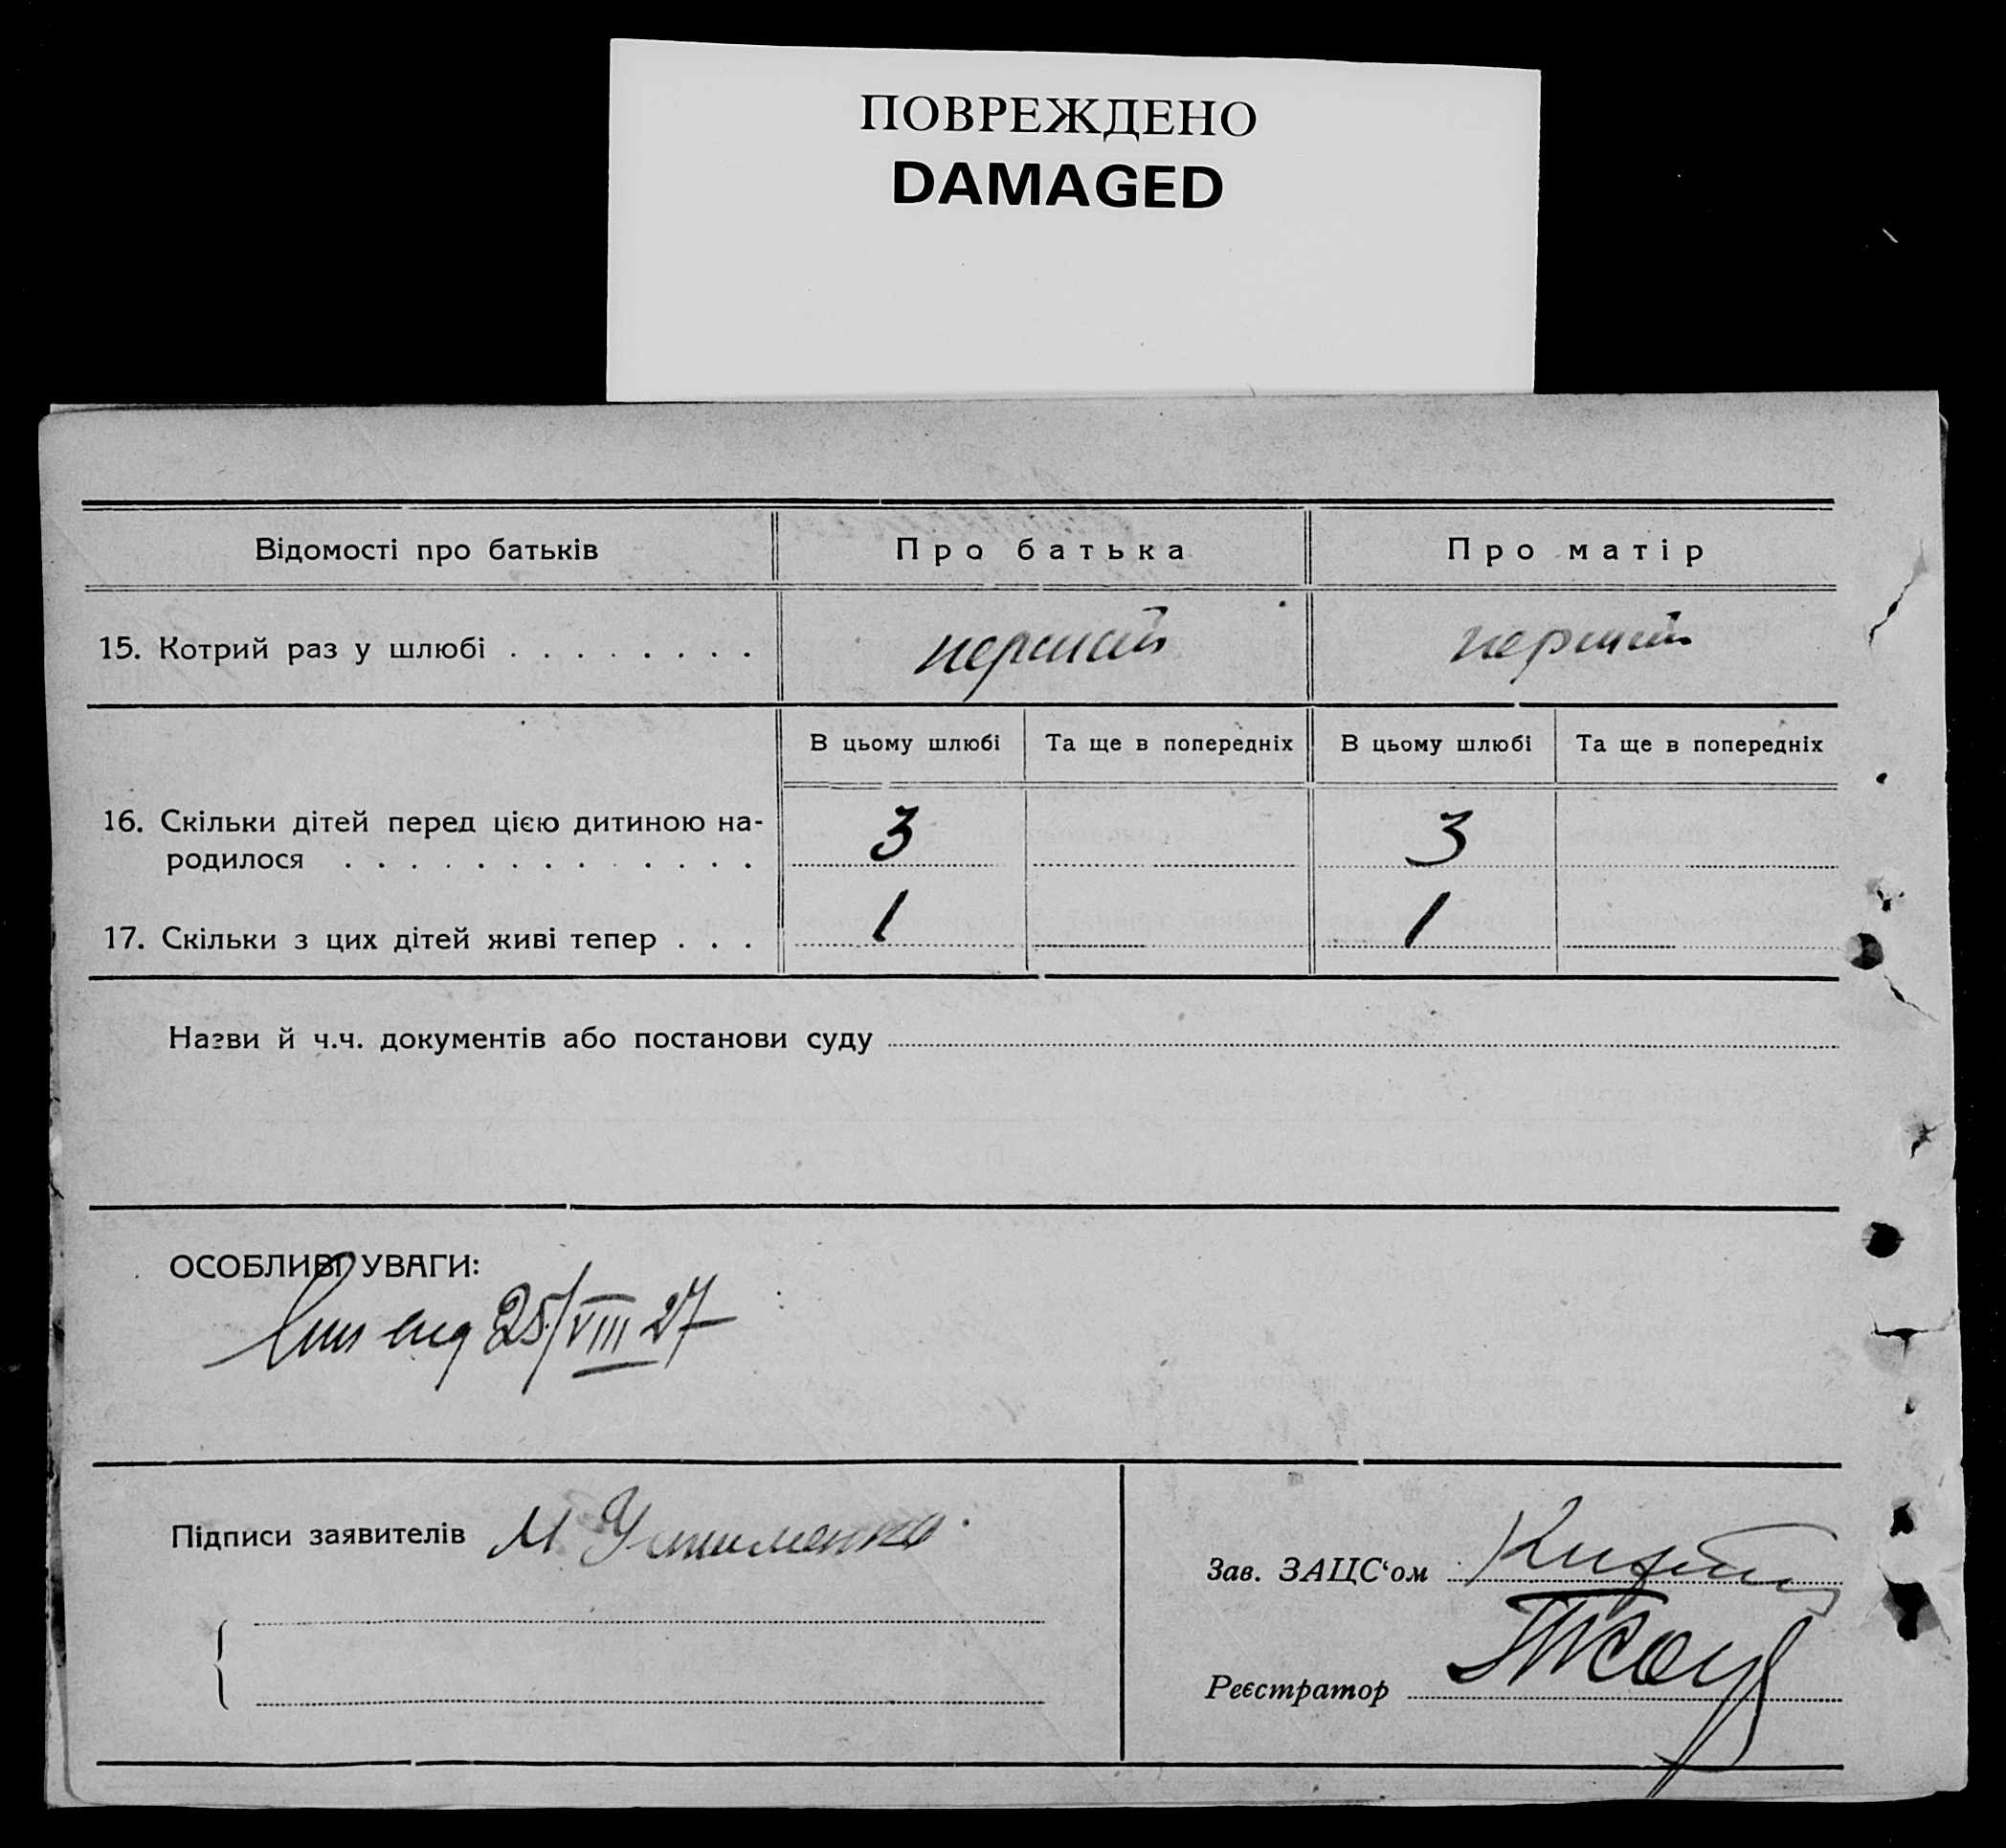 ПОВРЕЖДЕНО
DAMAGED
Відомості про батьків Про батька Про матір
15. Котрий раз у шлюбі . . . . . . . . перший перший
В цьому шлюбі Та ще в попередніх В цьому шлюбі Та ще в попередніх
16. Скільки дітей перед цією дитиною на-
родилося . . . . . . . . . . . . 3 3
17. Скільки з цих дітей живі тепер . . . 1 1
Назви й ч.ч. документів або постанови суду
ОСОБЛИВІ УВАГИ:
25/VIII 27
Підписи заявителів М
Зав. ЗАЦС'ом
Реєстратор